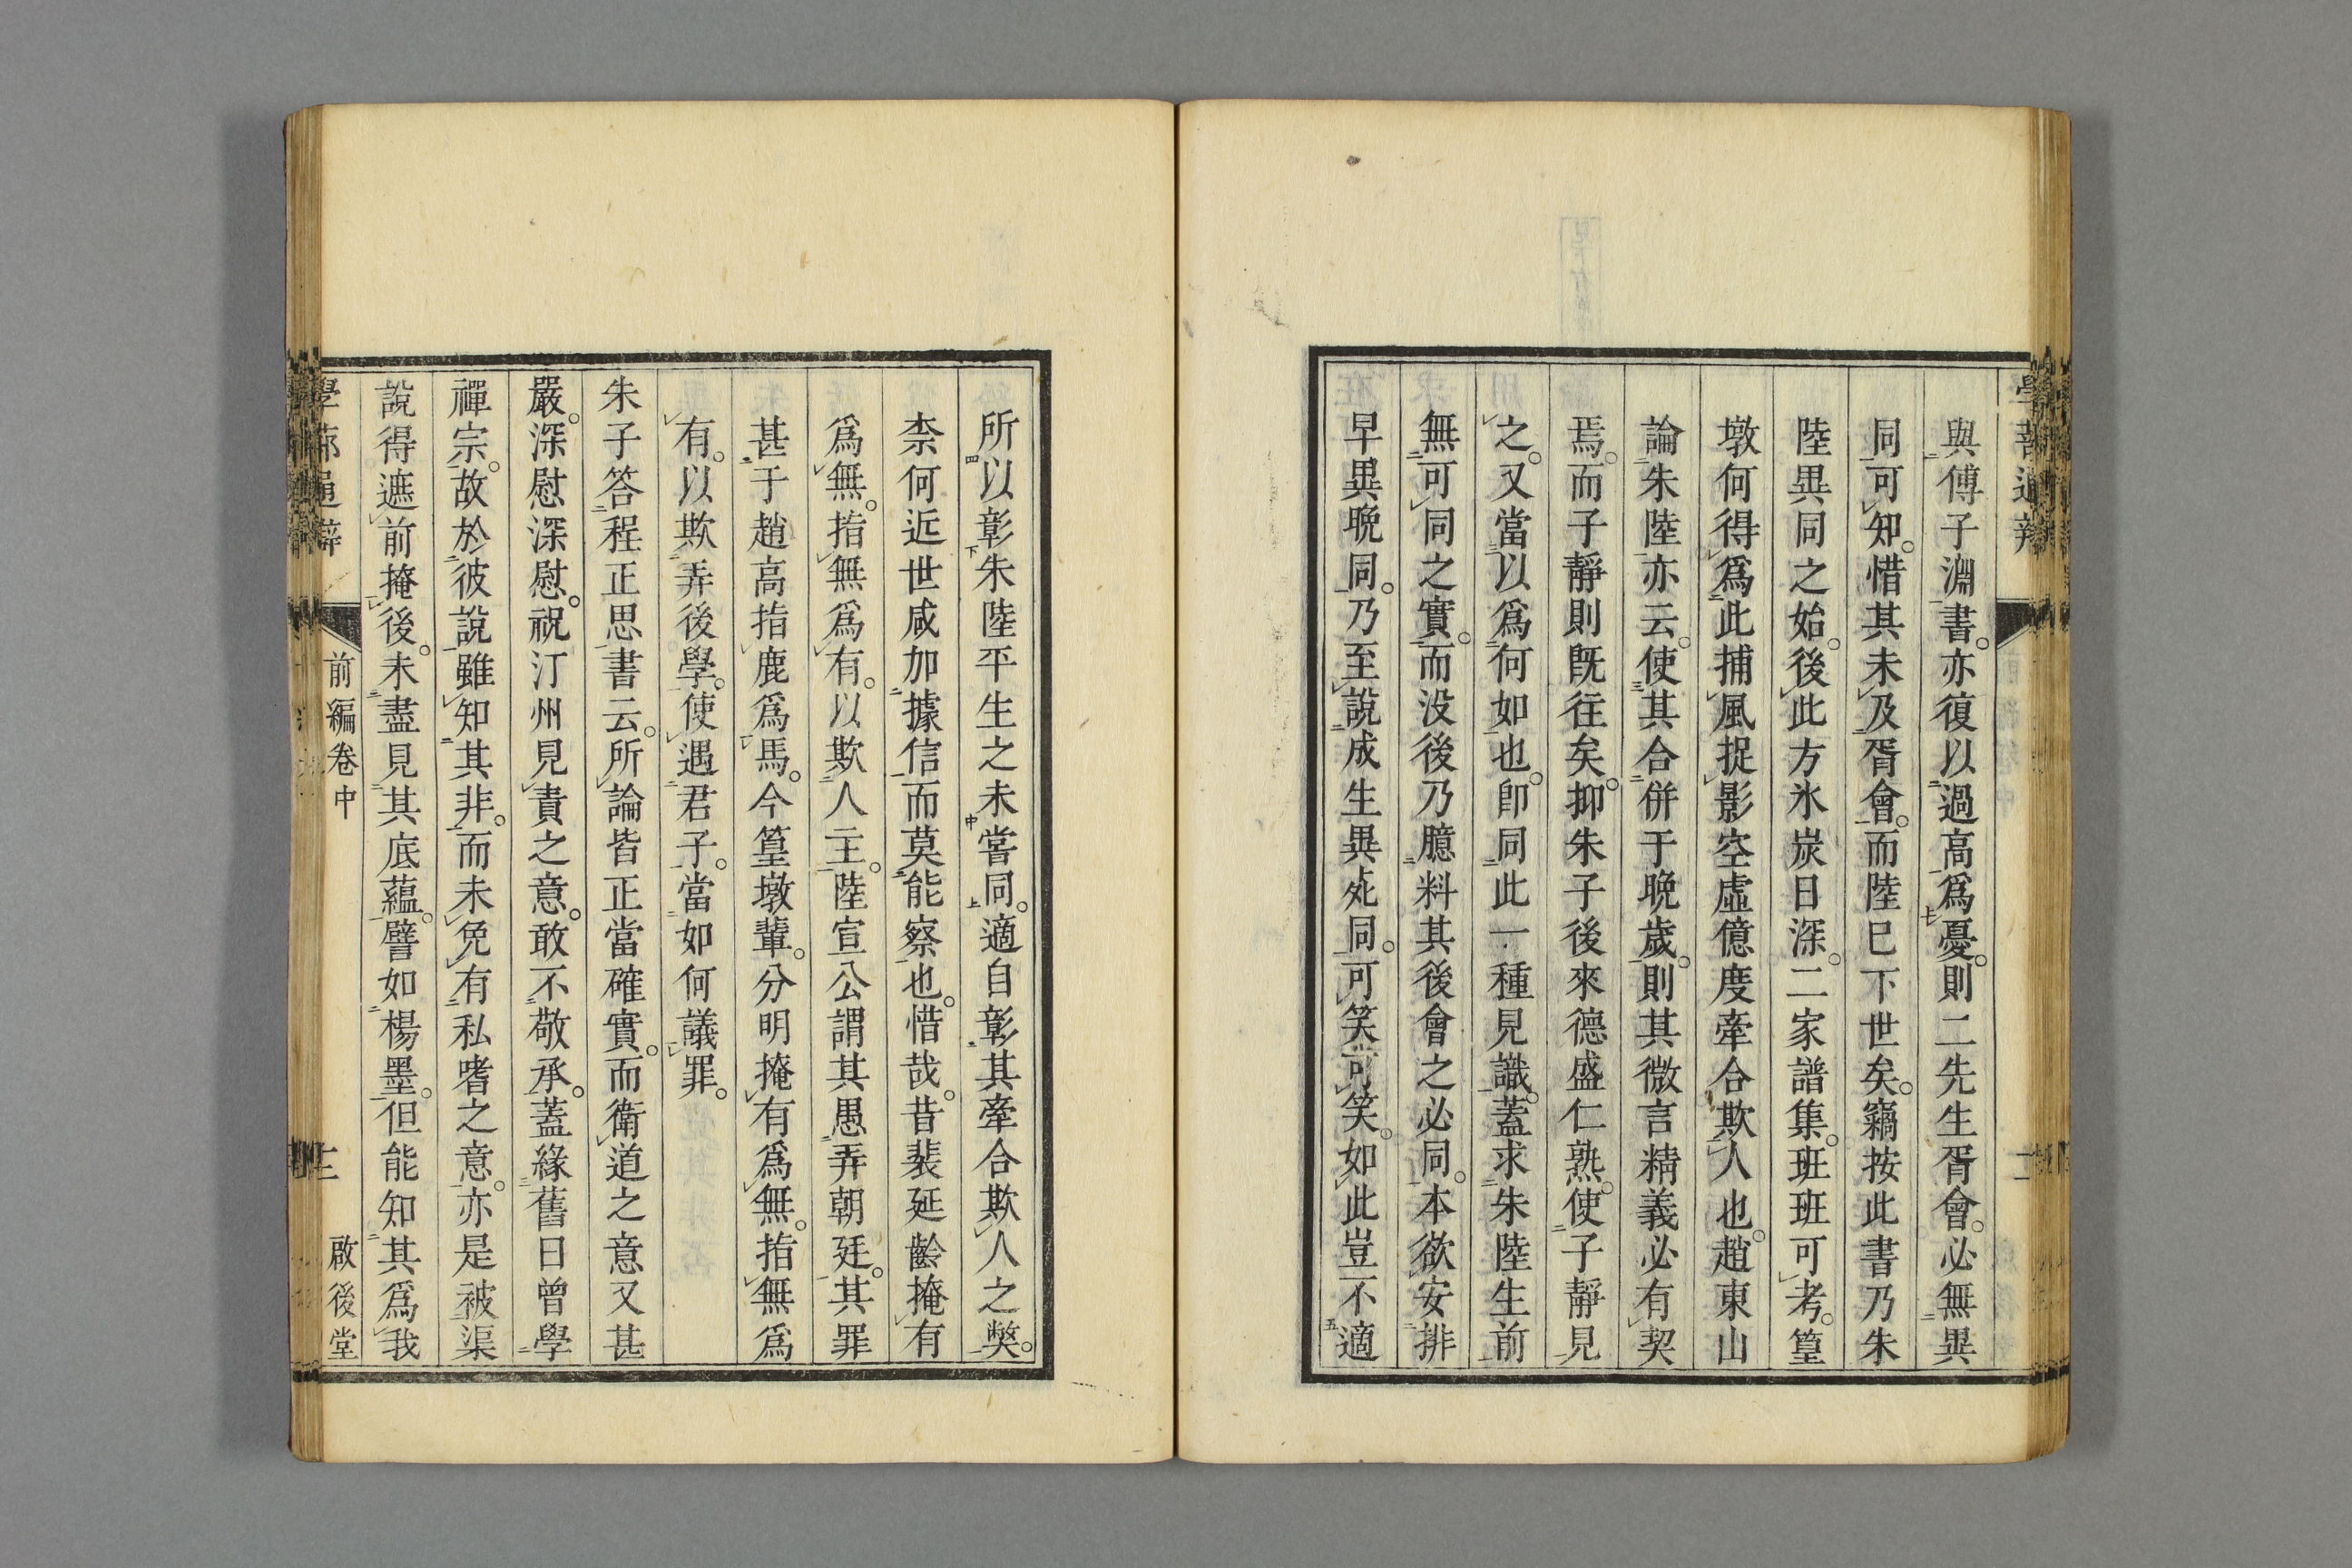 與傅子淵書。亦復以過高爲憂。則二先生胥會。必無異
同可知。惜其未及胥會。而陸已下世矣。竊按此書乃朱
陸異同之始。後此方氷炭日深。二家譜集。班班可考。篁
墩何得爲此捕風捉影空虛億度牽合欺人也。趙東山
論朱陸亦云。使其合併于晩歲。則其微言精義必有契
焉。而子靜則旣往矣。抑朱子後來德盛仁熟。使子靜見
之。又當以爲何如也。卽同此一種見識。蓋求朱陸生前
無可同之實。而没後乃臆料其後會之必同。本欲安排
早異晩同。乃至說成生異死同。可笑可笑。如此豈不適
所以彰朱陸平生之未嘗同。適自彰其牽合欺人之獘。
柰何近世咸加據信而莫能察也。惜哉。昔裴延齡掩有
爲無。指無爲有。以欺人主。陸宣公謂其愚弄朝廷。其罪
甚于趙高指鹿爲馬。今篁墩輩。分明掩有爲無。指無爲
有。以欺弄後學。使遇君子。當如何議罪。
朱子答程正思書云。所論皆正當確實。而衛道之意又甚
嚴。深慰深慰。祝汀州見責之意。敢不敬承。蓋緣舊日曾學
禪宗。故於彼說雖知其非。而未免有私嗜之意。亦是被渠
說得遮前掩後。未盡見其底蘊。譬如楊墨。但能知其爲我
前編卷中
啟後堂